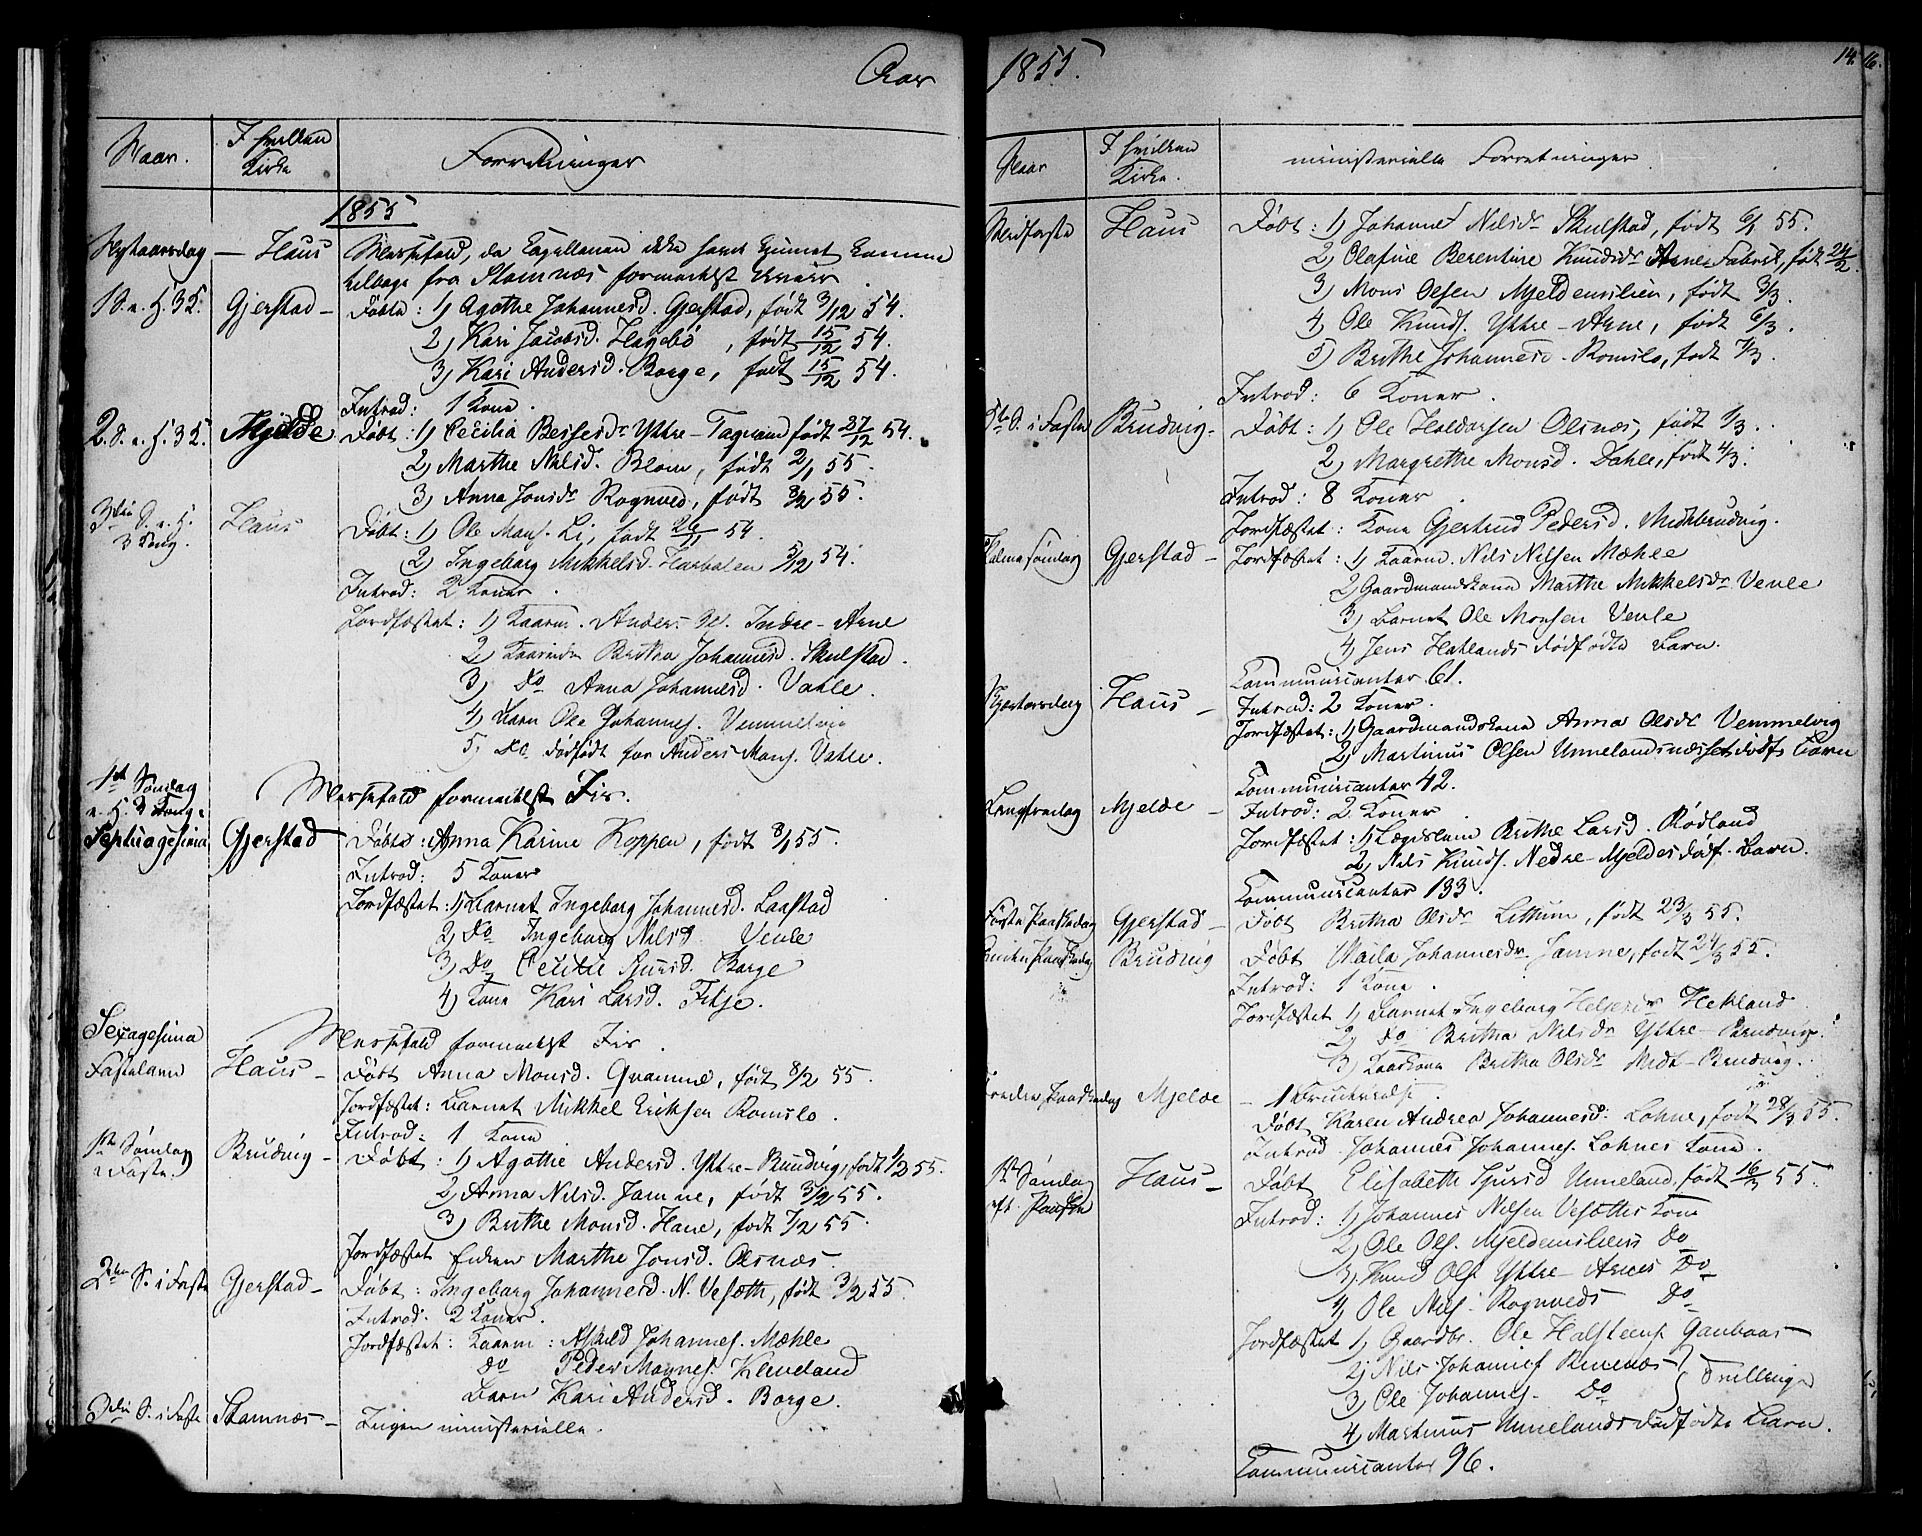 Aar
Naar. I hvilken Kirke Forretninger
1855
Nytaarsdag — Haus Messefald, da Capellanen ikke havde kunnet komme
tilbage fra Stamnæs formedelst Uveir.
1 S. e. H. 3 K. Gjerstad — Døbte: 1) Agathe Johannesd. Gjerstad, født 3/12 54.
2) Kari Jacobsd. Hagebø, født 15/12 54.
3) Kari Andersd. Borge, født 15/12 54.
Introd: 1 Kone.
2. S. e. H. 3 K. Mjelde Døbt: 1) Cecilia Bessesdr Yttre-Tagnæs født 27/12 54.
2) Marthe Nilsd. Blom, født 2/1 55.
3) Anna Jonsdr Rognved, født 55.
3die S. e. H. 3 Kong. Haus Døbt: 1) Ole Mons. Li, født 26/11 54.
2) Ingeborg Mikkelsd. 5/12 54.
Introd: 2 Koner.
Jordfæstet: 1) Kaarm. Anders Indre-Arne
2) Britha Johannesd. Skulstad.
3) Do Anna Johannesd. Vahle.
4) Barn Ole Johannes. Vemmelvig
5. Do dødfødt for Anders Mons. Vahle.
Søndag e. H. 3 Kong. Messefald formedelst Iis.
Septuagesima Gjerstad Døbt: Anna Karine Koppen, født 8/1 55.
Introd: 5 Koner
Jordfæstet: 1) Barnet Ingeborg Johannesd. Laastad
2) Do Ingeborg Nilsd. Venle
3) Do Cecilie Sjursd. Borge
4) Kone Kari Larsd. Fitje.
Sexagesima Messefald formedelst Iis.
Fastelavn Haus — Døbt Anna Monsd. Qvamme, født 8/2 55.
Jordfæstet: Barnet Mikkel Eriksen Romslo.
Introd: 1 Kone
1ste Søndag i Faste. Brudvig — Døbt: 1) Agathe Andersd. Yttre-Brudvig, født 1/2 55.
2) Anna Nilsd. Jamne, født 3/2 55.
3) Brithe Monsd. Hane, født 7/2 55.
Jordfæstet Enken Marthe Jonsd. Olsnæs.
2den S. i Faste Gjerstad — Døbt: Ingeborg Johannesd. N. Vesæth, født 3/2 55.
Introd: 2 Koner.
Jordfæstet: Kaarm: Askild Johannes. Mæhle
Do Peder Magnes. Kleveland
Barn Kari Andersd. Borge.
3die S. i Faste Stamnæs — Ingen ministerielle.
1855.
14. 16.
Naar I hvilken Kirke. ministerielle Forretninger
Midfaste Haus Døbt: 1) Johannes Nilsdr Skulstad, født 6/1 55.
2) Olafine Berentine Knudsdr Arne-Fabrik, født 24/2.
3) Mons Olsen Mjeldemslien, født 3/3.
4) Ole Knuds. Yttre-Arne, født 6/3.
5) Brithe Johannesd. Romslo, født 7/3.
Introd: 6 Koner.
5te S. i Faste Brudvig — Døbt: 1) Ole Haldorsen Olsnæs, født 1/3.
2) Margrethe Monsd. Dahle, født 4/3.
Introd: 8 Koner.
Jordfæstet: Kone Gjertrud Pedersd. Midtbrudvig.
Palmesøndag Gjerstad — Jordfæstet: 1) Kaarm. Nils Nilsen Mæhle
2) Gaardmandskone Marthe Mikkelsdr Venle
3) Barnet Ole Monsen Venle
4) Jens Hatlands dødfødte Barn.
Communicanter 61.
Skjertorsdag Haus — Introd: 2 Koner.
Jordfæstet: 1) Gaardmandskone Anna Olsdr Vemmelvig
2) Martinus Olsen Unnelandsnæsset dødf. Barn
Communicanter 42.
Langfredag Mjelde — Introd: 2 Koner
Jordfæstet: 1) Lægdslem Brithe Larsd. Rødland
2) Nils Knuds. Nedre-Mjeldes dødf. Barn.
Communicanter 133.
Første Paaskedag Gjerstad — Døbt Britha Olsdr Littum, født 23/3 55.
Anden Paaskedag Brudvig Døbt Maila Johannesdr. Jamne, født 24/3 55.
Introd: 1 Kone.
Jordfæstet 1) Barnet Ingeborg Helgesdr Hekland
2) Do Britha Nilsdr Yttre-Brudvig.
3) Kaarkone Britha Olsdr Midt-Brudvig.
Tredie Paaskedag Mjelde — 1 Brudevielse.
Døbt Karen Andrea Johannesd. Lohne, født 28/3 55.
Introd. Johannes Johannes. Lohnes Kone.
1ste Søndag eft. Paaske Haus — Døbt Elisabeth Sjursd Unneland, født 16/3 55.
Introd: 1) Johannes Nilsen Vesæths Kone
2) Ole Ols. Mjeldemsliens Do
3) Knud Ols. Yttre-Arnes Do
4) Ole Nils. Rognveds Do
Jordfæstet 1) Gaardbr. Ole Halstens. Gaubaas
2) Nils Johannes. Reisnæs } Tvillinger
3) Ole Johannes. Do
4) Martinus Unnelands dødfødte Barn.
Communicanter 96.